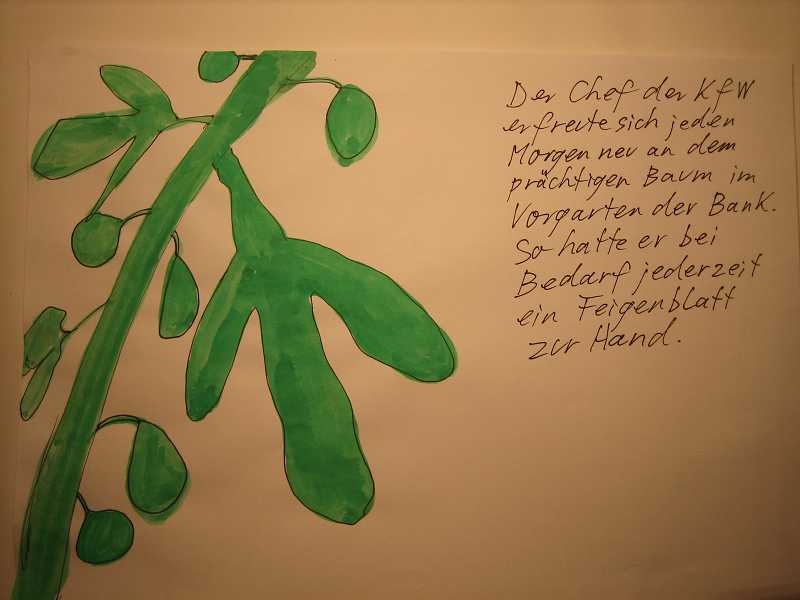 Der Chef der KfW
erfreute sich jeden
Morgen neu an dem
prächtigen Baum im
Vorgarten der Bank.
So hatte er bei
Bedarf jederzeit
ein Feigenblatt
zur Hand.